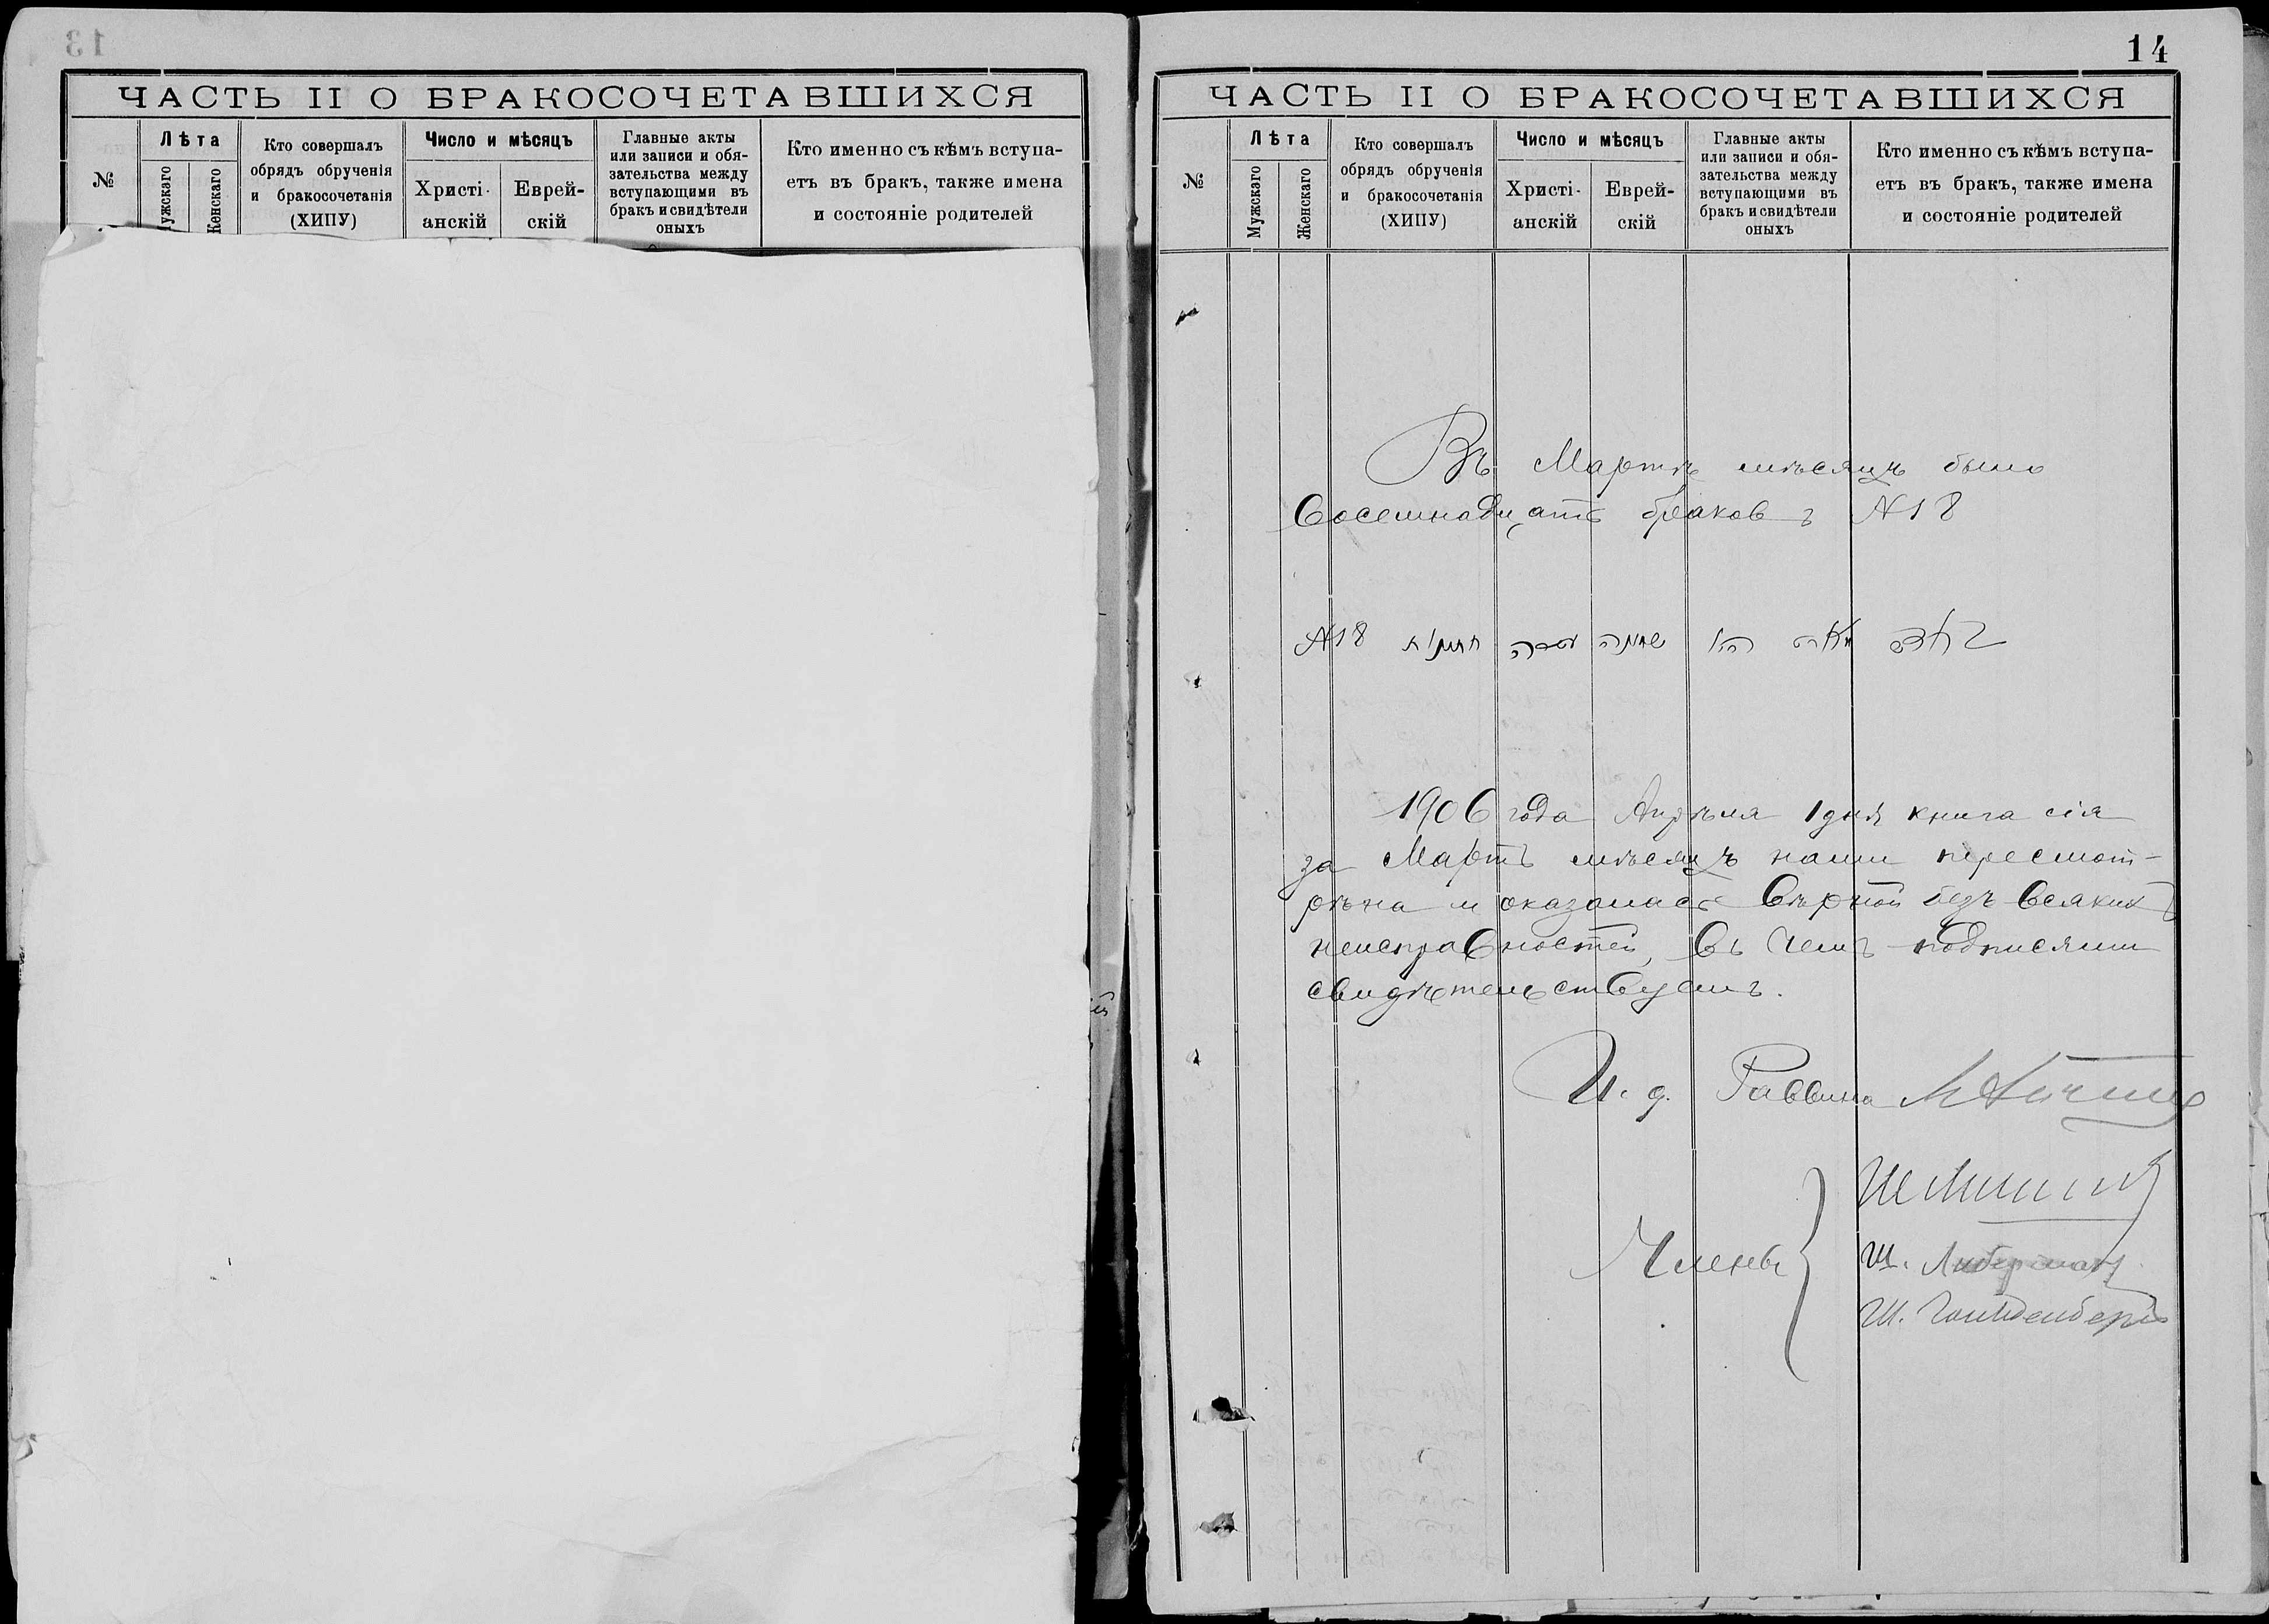 13
ЧАСТЬ II О БРАКОСОЧЕТАВШИХСЯ
№
Лѣта
Мужскаго
Женскаго
Кто совершалъ
обрядъ обрученія
и бракосочетанія
(ХИПУ)
Число и мѣсяцъ
Христі-
анскій
Еврей-
скій
Главные акты
или записи и обя-
зательства между
вступающими въ
бракъ и свидѣтели
оныхъ
Кто именно съ кѣмъ вступа-
етъ въ бракъ, также имена
и состояніе родителей
14
ЧАСТЬ II О БРАКОСОЧЕТАВШИХСЯ
№
Лѣта
Мужскаго
Женскаго
Кто совершалъ
обрядъ обрученія
и бракосочетанія
(ХИПУ)
Число и мѣсяцъ
Христі-
анскій
Еврей-
скій
Главные акты
или записи и обя-
зательства между
вступающими въ
бракъ и свидѣтели
оныхъ
Кто именно съ кѣмъ вступа-
етъ въ бракъ, также имена
и состояніе родителей
Въ Мартѣ мѣсяцѣ было
восемнадцать браковъ №18
שמונה עשרה №18
1906 года Апрѣля 1 дня книга сія
за Мартъ мѣсяцъ нами пересмот-
рѣна и оказалась вѣрной безъ всякихъ
неисправностей, въ чемъ подписями
свидѣтельствуемъ.
И. д. Раввина
Члены
Ш. Либерманъ
Ш. Гольденбергъ